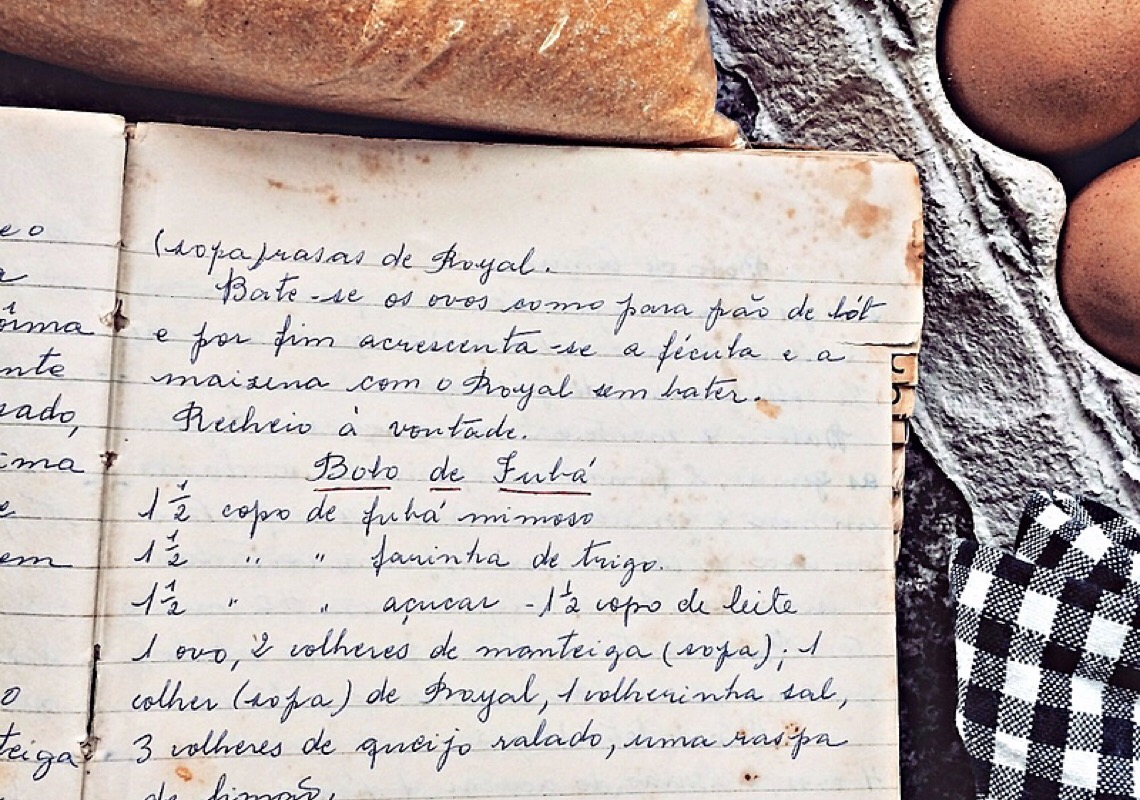 eo
a
ôrma
nte
sado,
ima
e
em
o
teiga
(sopa) rasas de Royal.
Bate-se os ovos como para pão de lót
e por fim acrescenta-se a fécula e a
maizena com o Royal sem bater.
Recheio à vontade.
Bolo de Fubá
1 1/2 copo de fubá mimoso
1 1/2 " " farinha de trigo.
1 1/2 " " açucar - 1 1/2 copo de leite
1 ovo, 2 colheres de manteiga (sopa); 1
colher (sopa) de Royal, 1 colherinha sal,
3 colheres de queijo ralado, uma raspa
de limão.